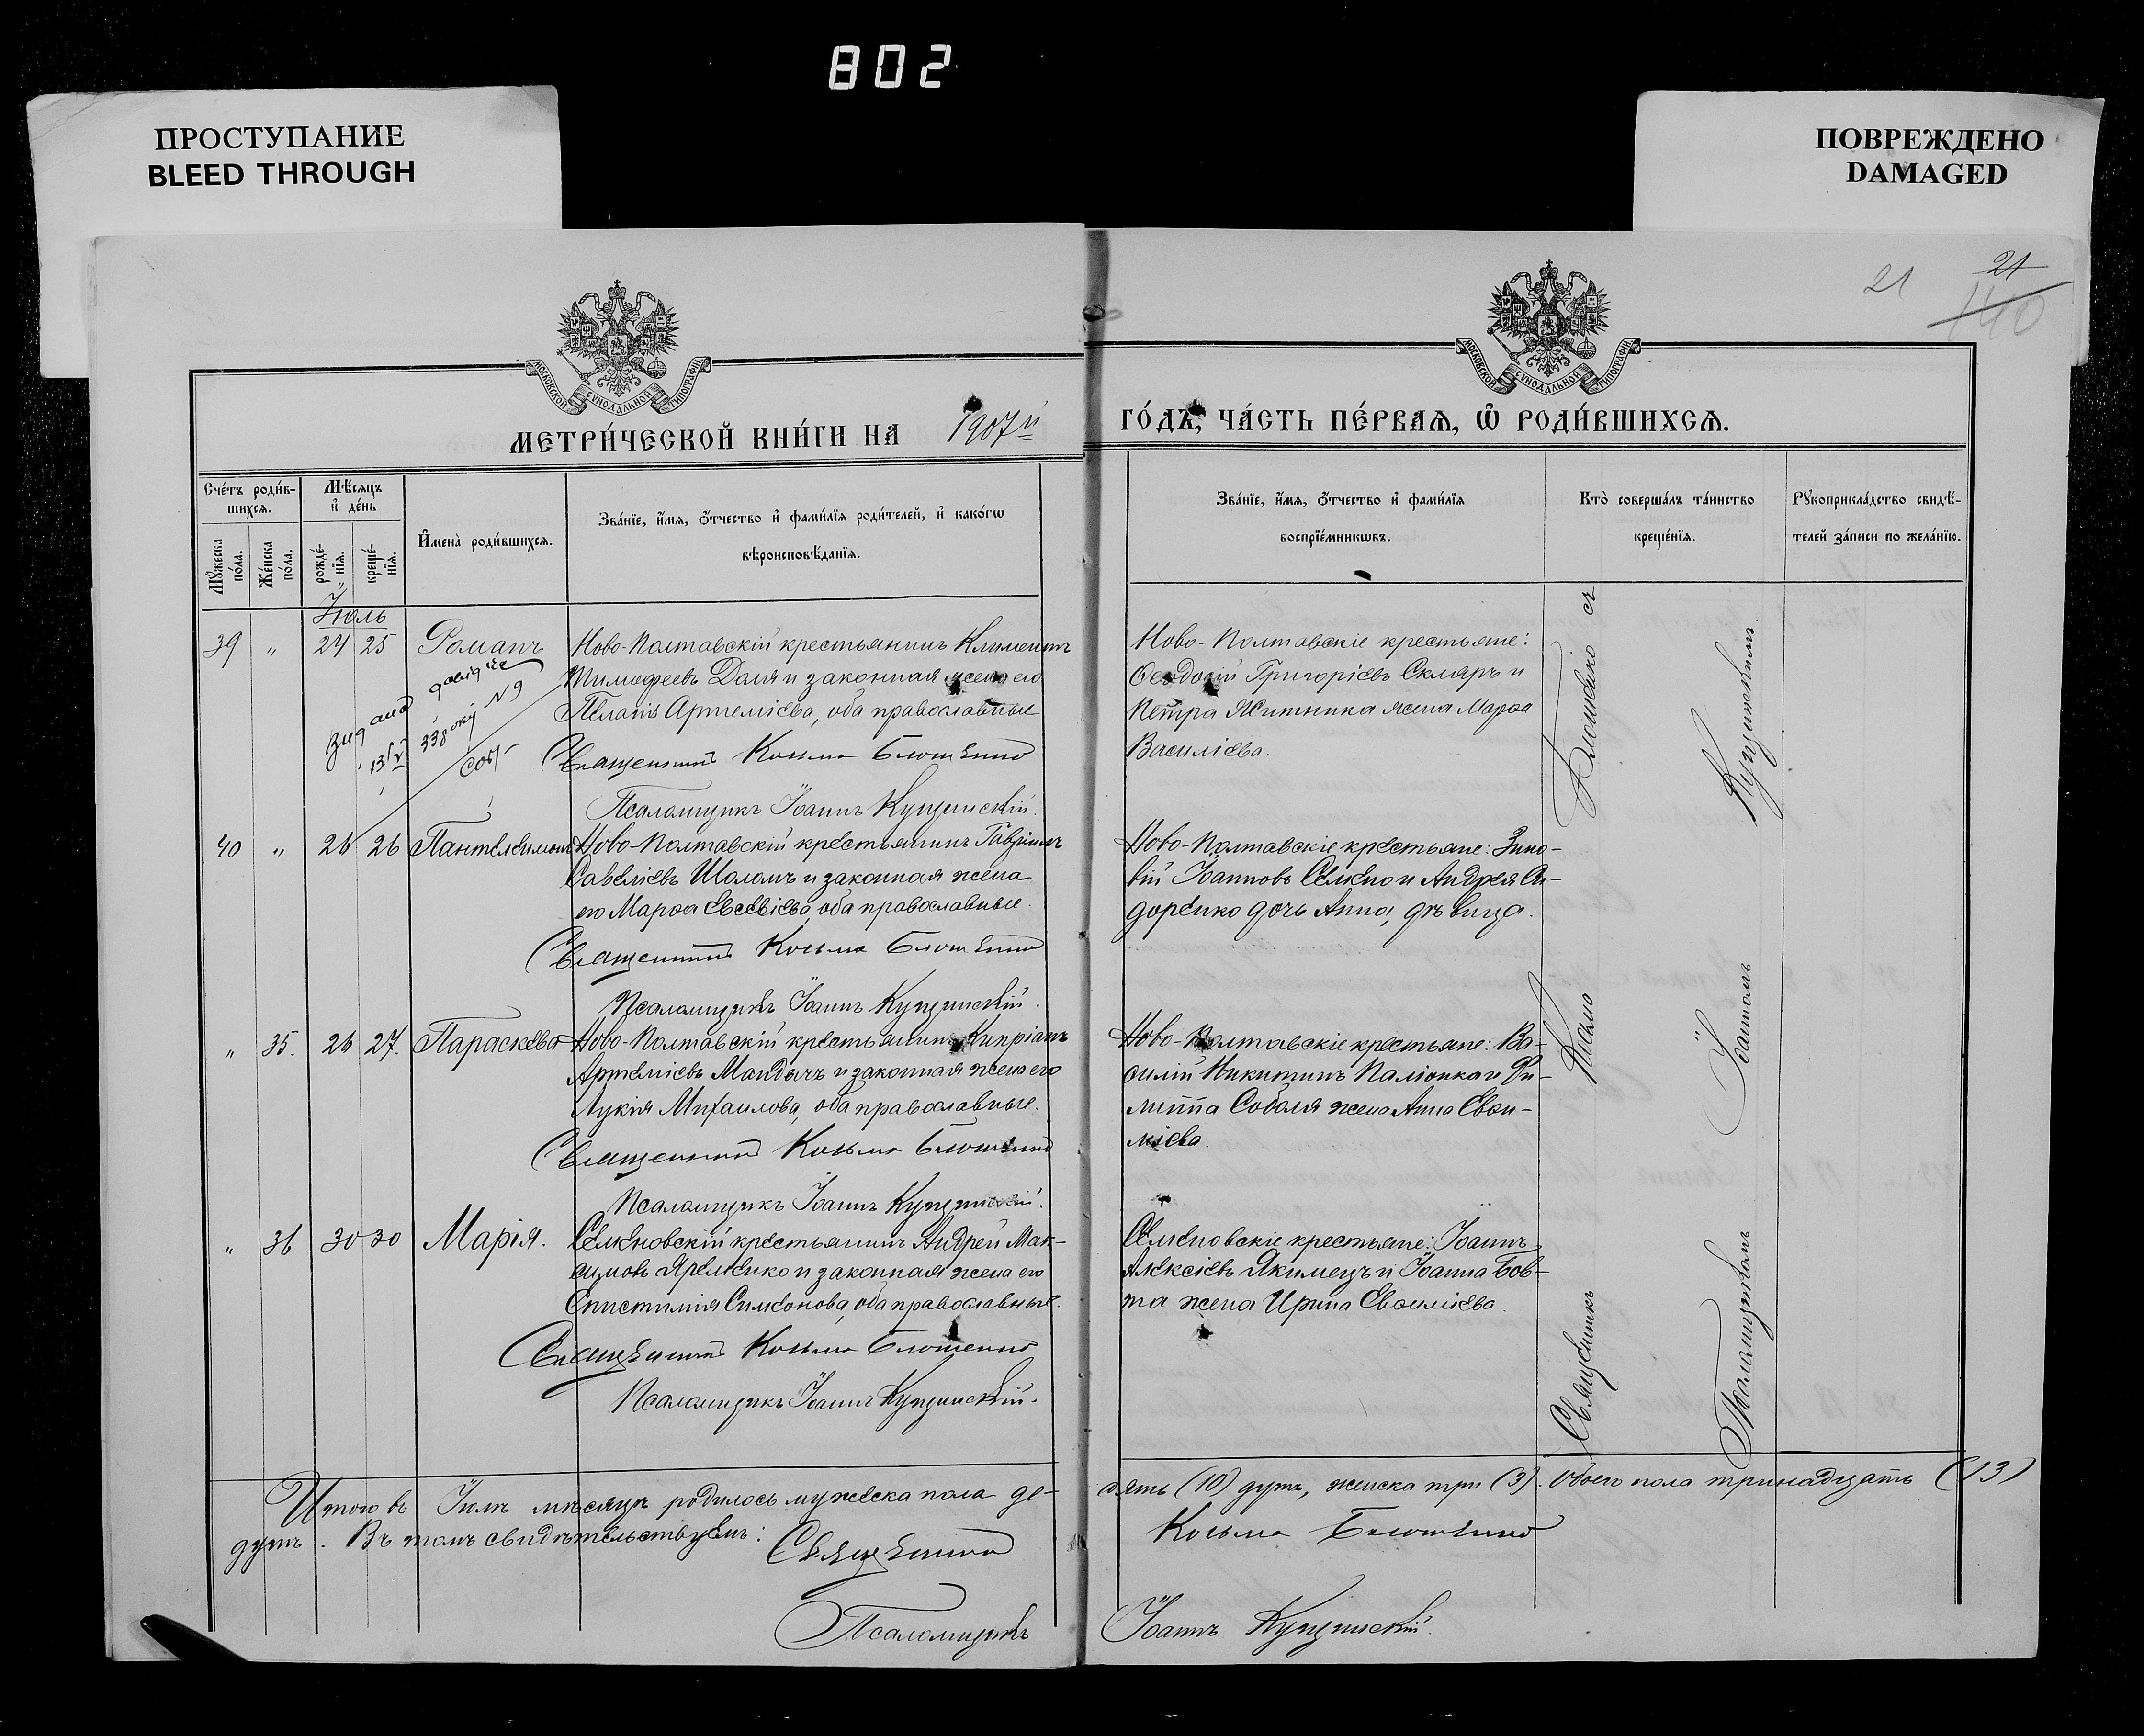 802
ПРОСТУПАНИЕ
BLEED THROUGH
ПОВРЕЖДЕНО
DAMAGED
21
21
140
МОСКОВСКОЙ СУНОДАЛЬНОЙ ТИПОГРАФІИ
МОСКОВСКОЙ СУНОДАЛЬНОЙ ТИПОГРАФІИ
МЕТРИ́ЧЕСКОЙ КНИ́ГИ НА 1907й
ГО́ДЪ, ЧА́СТЬ ПЕ́РВАѦ, Ѡ҆ РОДИ́ВШИХСѦ.
Сче́тъ роди́в-
шихсѧ.
Мꙋ́жеска
по́ла.
Же́нска
по́ла.
Мѣ́сѧцъ
и҆ де́нь
рожде́-
нїѧ.
креще́-
нїѧ.
И҆мена̀ роди́вшихсѧ.
Зва́нїе, и҆́мѧ, ѻ҆́тчество и҆ фами́лїѧ роди́телей, и҆ како́гѡ
вѣроисповѣ́данїѧ.
Зва́нїе, и҆́мѧ, ѻ҆́тчество и҆ фами́лїѧ
воспрїе́мникѡвъ.
Кто̀ соверша́лъ та́инство
креще́нїѧ.
Рꙋкоприкла́дство свидѣ́-
телей за́писи по жела́нїю.
Іюль
39 " 24 25 Романъ
Ново-Полтавскій крестьянинъ Климентъ
Тимофеевъ Доля и законная жена его
Пелагія Артеміева, оба православные
Священникъ Козьма Блошенко
Псаломщикъ Іоаннъ Кущинскій.
Ново-Полтавскіе крестьяне:
Ѳеодосій Григоріевъ Скляръ и
Петра Житника жена Марѳа
Василіева.
40 " 26 26 Пантелеимонъ
Ново-Полтавскій крестьянинъ
Савеліевъ Шаламъ и законная жена
его Марѳа Евсевіева, оба православные.
Священникъ Козьма Блошенко
Псаломщикъ Іоаннъ Кущинскій.
Ново-Полтавскіе крестьяне: Зино-
вій Іоанновъ Семено и Андрея Си-
доренко дочь Анна, дѣвица.
" 35. 26 27. Параскева
Ново-Полтавскій крестьянинъ Кипріанъ
Артеміевъ Мандычъ и законная жена его
Лукія Михаилова, оба православные.
Священникъ Козьма Блошенко
Псаломщикъ Іоаннъ Кущинскій.
Ново-Полтавскіе крестьяне: Ва-
силій Никитинъ Паліонка и Фи-
липпа Соболя жена Анна Евѳи-
міева.
" 36 30 30 Марія.
Семеновскій крестьянинъ Андрей Мак-
симовъ Яременко и законная жена его
Епистимія Симеонова, оба православные.
Священникъ Козьма Блошенко
Псаломщикъ Іоаннъ Кущинскій.
Семеновскіе крестьяне: Іоаннъ
Алексіевъ Якимецъ и Іоанна Бов-
та жена Ирина Евѳиміева.
Священникъ Блошенко съ
Псаломщикомъ Іоанномъ Кущинскимъ.
Итого въ Іюлѣ мѣсяцѣ родилось мужеска пола де-
сять (10) душъ, женска три (3). Обоего пола тринадцать (13)
душъ. Въ томъ свидѣтельствуемъ:
Священникъ Козьма Блошенко
Псаломщикъ Іоаннъ Кущинскій.